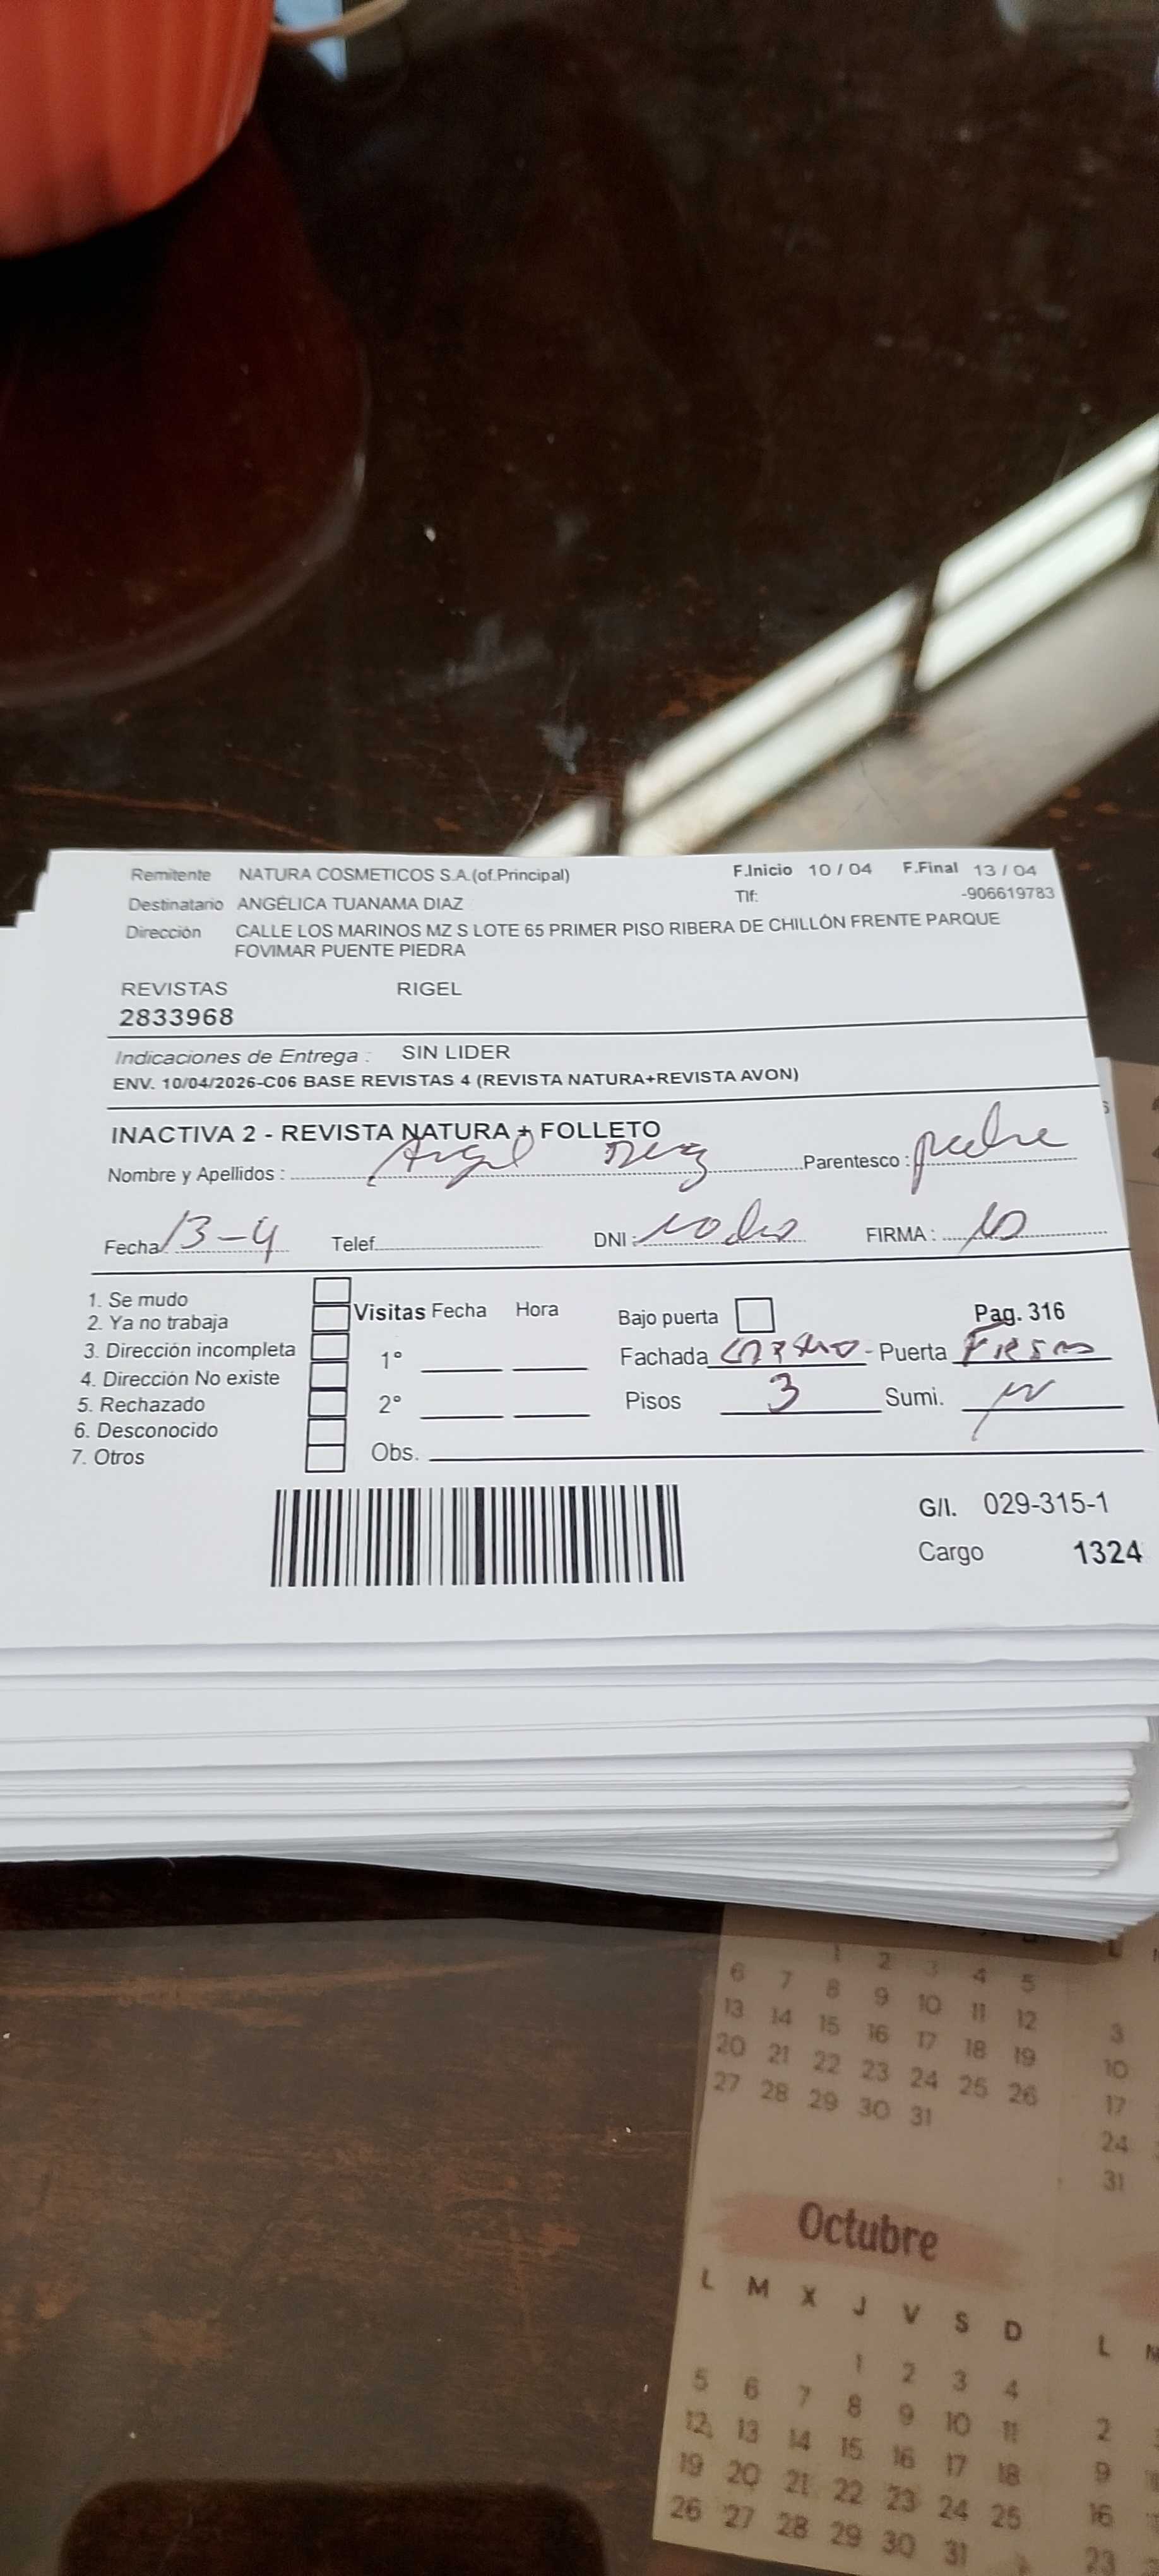 Remitente NATURA COSMETICOS S.A.(of.Principal) F.Inicio 10 / 04 F.Final 13 / 04
Destinatario ANGÉLICA TUANAMA DIAZ Tlf: -906619783
Dirección CALLE LOS MARINOS MZ S LOTE 65 PRIMER PISO RIBERA DE CHILLÓN FRENTE PARQUE
FOVIMAR PUENTE PIEDRA
REVISTAS RIGEL
2833968
Indicaciones de Entrega : SIN LIDER
ENV. 10/04/2026-C06 BASE REVISTAS 4 (REVISTA NATURA+REVISTA AVON)
INACTIVA 2 - REVISTA NATURA + FOLLETO
Nombre y Apellidos : Parentesco : padre
Fecha 13-4 Telef. DNI : FIRMA :
1. Se mudo
2. Ya no trabaja
3. Dirección incompleta
4. Dirección No existe
5. Rechazado
6. Desconocido
7. Otros
Visitas Fecha Hora
1°
2°
Obs.
Bajo puerta Pag. 316
Fachada - Puerta
Pisos 3 Sumi.
G/I. 029-315-1
Cargo 1324
1 2 3 4 5
6 7 8 9 10 11 12
13 14 15 16 17 18 19
20 21 22 23 24 25 26
27 28 29 30 31
3
10
17
24
31
Octubre
L M X J V S D
1 2 3 4
5 6 7 8 9 10 11
12 13 14 15 16 17 18
19 20 21 22 23 24 25
26 27 28 29 30 31
L
2
9
16
23